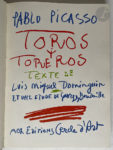 PABLO PICASSO
TOROS
Y
TOREROS
TEXTE DE
Luis Miguel Dominguin
ET UNE ETUDE DE Georges Boudaille
Editions Cercle d'Art